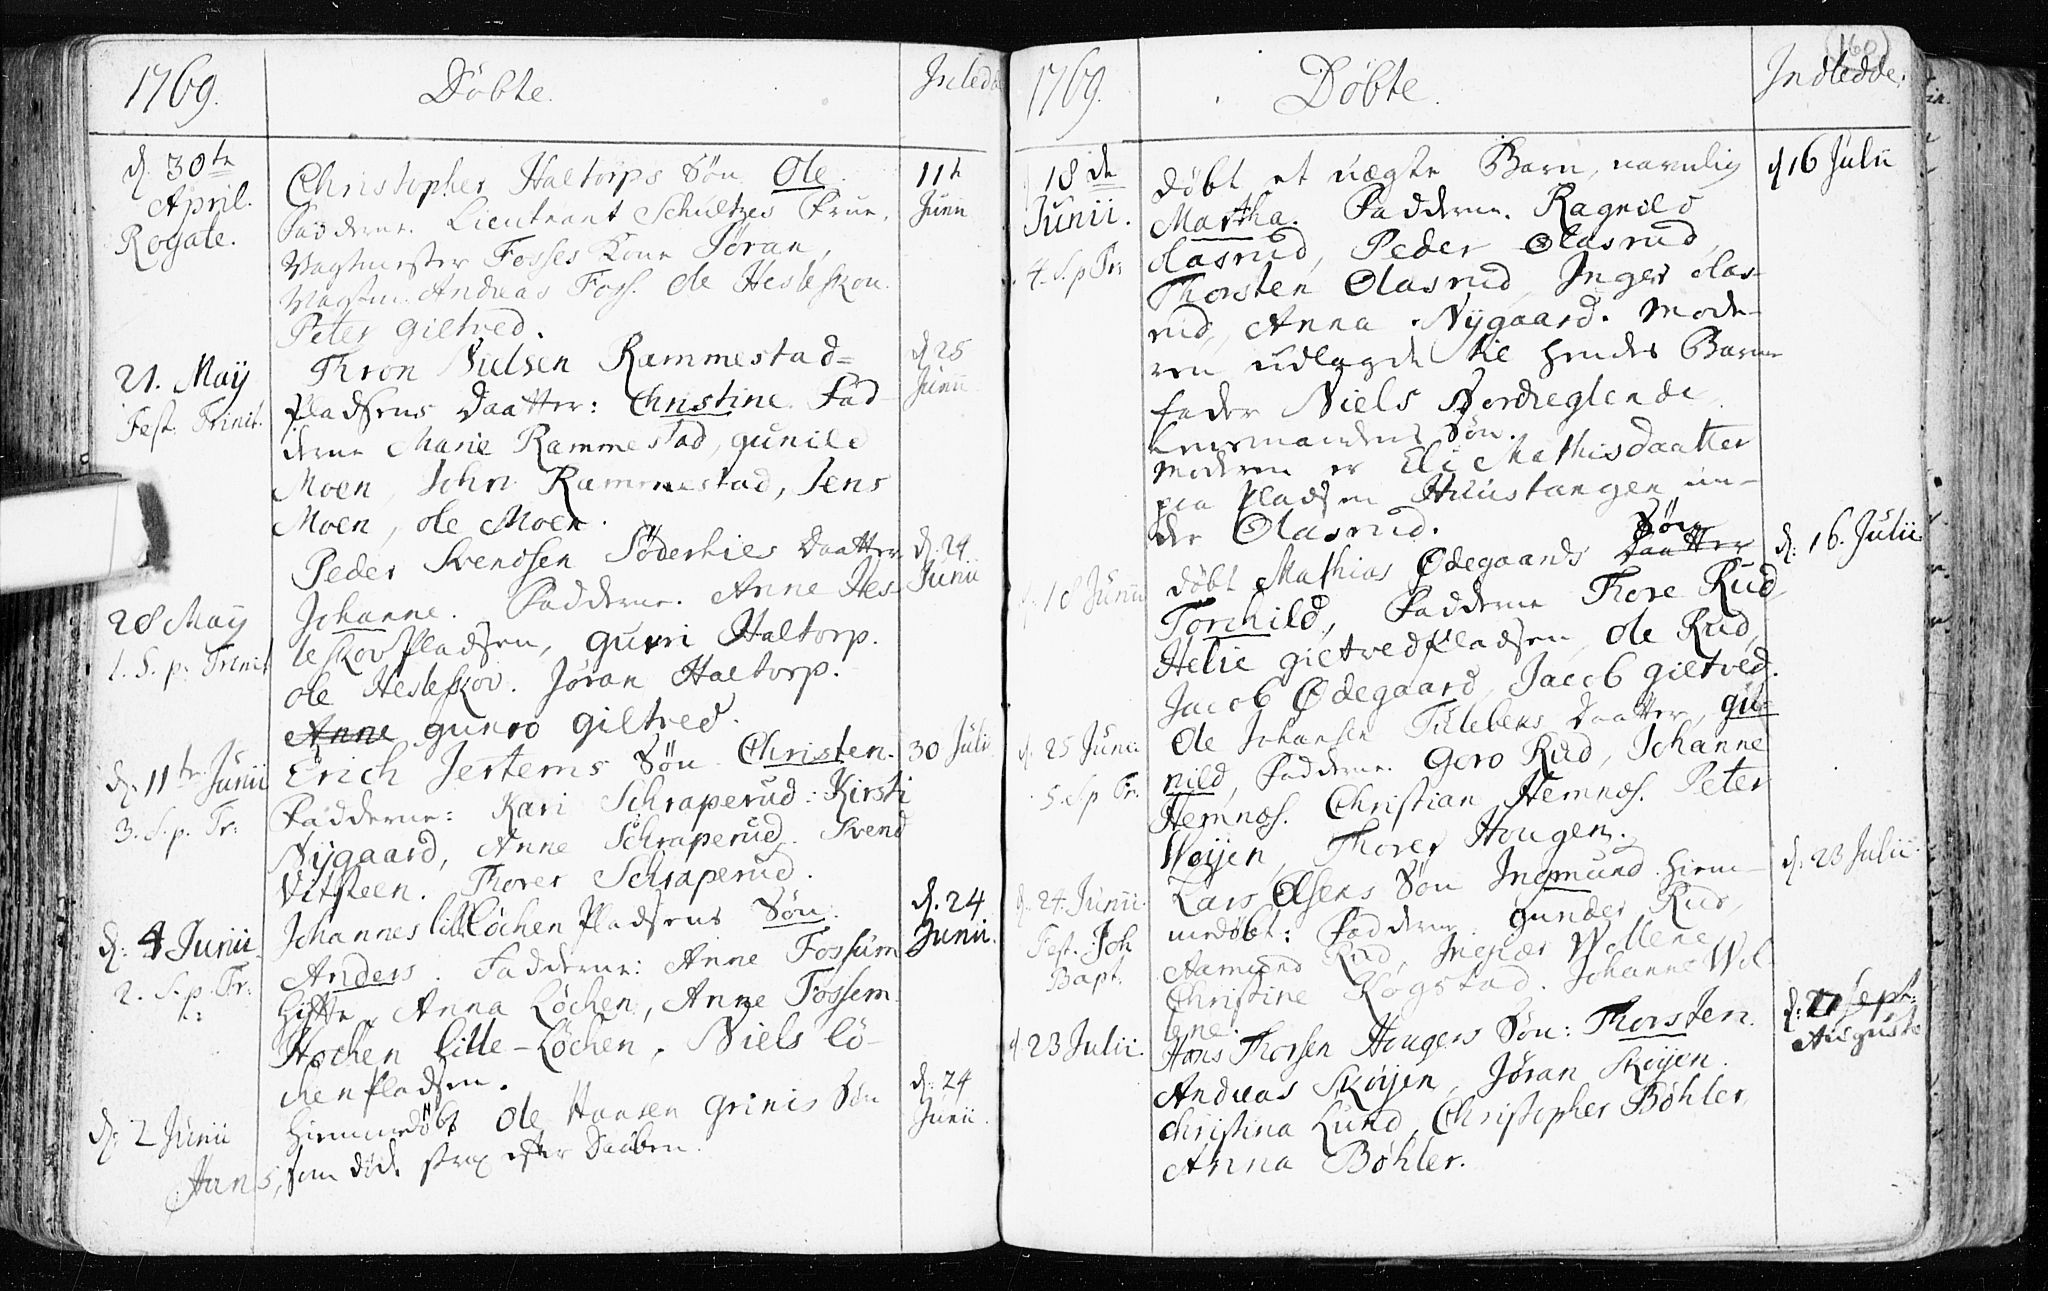 1769.
Döbte.
Inledde
d. 30te April. Rogate.
Christopher Haltorps Søn Ole.
Fadderne. Lieutnant Schultzes Frue,
Vagtmester Fosses Kone Jøran,
Vagtm. Andreas Foss. Ole Hesleskou.
Peter giltved.
11te Junii
21. Maij Fest. Trinit.
Thron Nielsen Rammestad=
Pladsens Daatter: Christine. Fad-
derne Marie Rammestad, gunild
Moen, John Rammestad, Jens
Moen, Ole Moen.
d 25 Junii
28 Maij 1. S. p. Trinit
Peder Svendsen Söderhies Daatter
Johanne. Fadderne. Anne Hes-
leskov Pladsen, guri Haltorp.
Ole Hesleskov. Jøran Haltorp.
Anne gunro giltved.
d. 24 Junii
d. 11te Junii 3. S. p. Tr:
Erich Jertems Søn Christen.
Fadderne: Kari Schraperud. Kirsti
Nÿgaard, Anne Schraperud. Svend
Vitsteen. Thorer Schraperud.
30 Julii
d. 4 Junii. 2. S. p. Tr:
Johannes lille Løchen Pladsens Søn.
Anders. Fadderne: Anne Fossum
Hitte, Anna Løchen, Anne Fossem.
Hochen lille-Løchen, Niels lö-
chen Pladsen.
d. 24 Junii.
d: 2 Junii
Hiemmedøbt Ole Hansen grinis Søn
Hans, som döde strax efter Daaben.
d: 24 Junii.
1769.
Döbte.
Indledde.
(160)
18de Junii. 4. S. p Tr:
döbt et uægte Barn, navnlig
Martha. Fadderne. Ragnild
Olasrud, Peder Olasrud,
Thorsten Olasrud, Inger Olas-
rud, Anna Nÿgaard. Mode-
ren udlagde til hendes Barne
fader Niels Nordreglende
Lensmandens Søn.
Moderen er Eli Mathisdaatter
paa Pladsen Huustangen un-
der Olasrud.
d 16 Julii
18 Junii
døbt Mathias Ødegaards Daatter Søn
Torchild, Fadderne Thore Rud,
Helie giltved Pladsen, Ole Rud,
Jacob Ødegaard, Jacob giltved.
d: 16. Julii
d. 25 Junii 5. S p Tr:
Ole Johansen Tulebens Daatter, gu-
nild, Fadderne. Goro Rud, Johanne
Hemnæs. Christian Hemnæs. Peter
Woÿen, Thorer Hougen.
d. 24. Junii. Fest. Joh Bapt.
Lars Olsens Søn Ingmund. Hiem-
medøbt: Fadderne. gunder Rud,
Aamund Rud, Ingebor Wollene,
Christine Køgstad. Johanne Wol-
lene.
d. 23 Julii.
d 23 Julii.
Hans Thorsen Hougens Søn: Thorsten.
Andreas Skøÿen, Jøran Skøÿen.
Christina Lund, Christopher Bøhler,
Anna Bøhler.
d: 27 Sept: Augusti